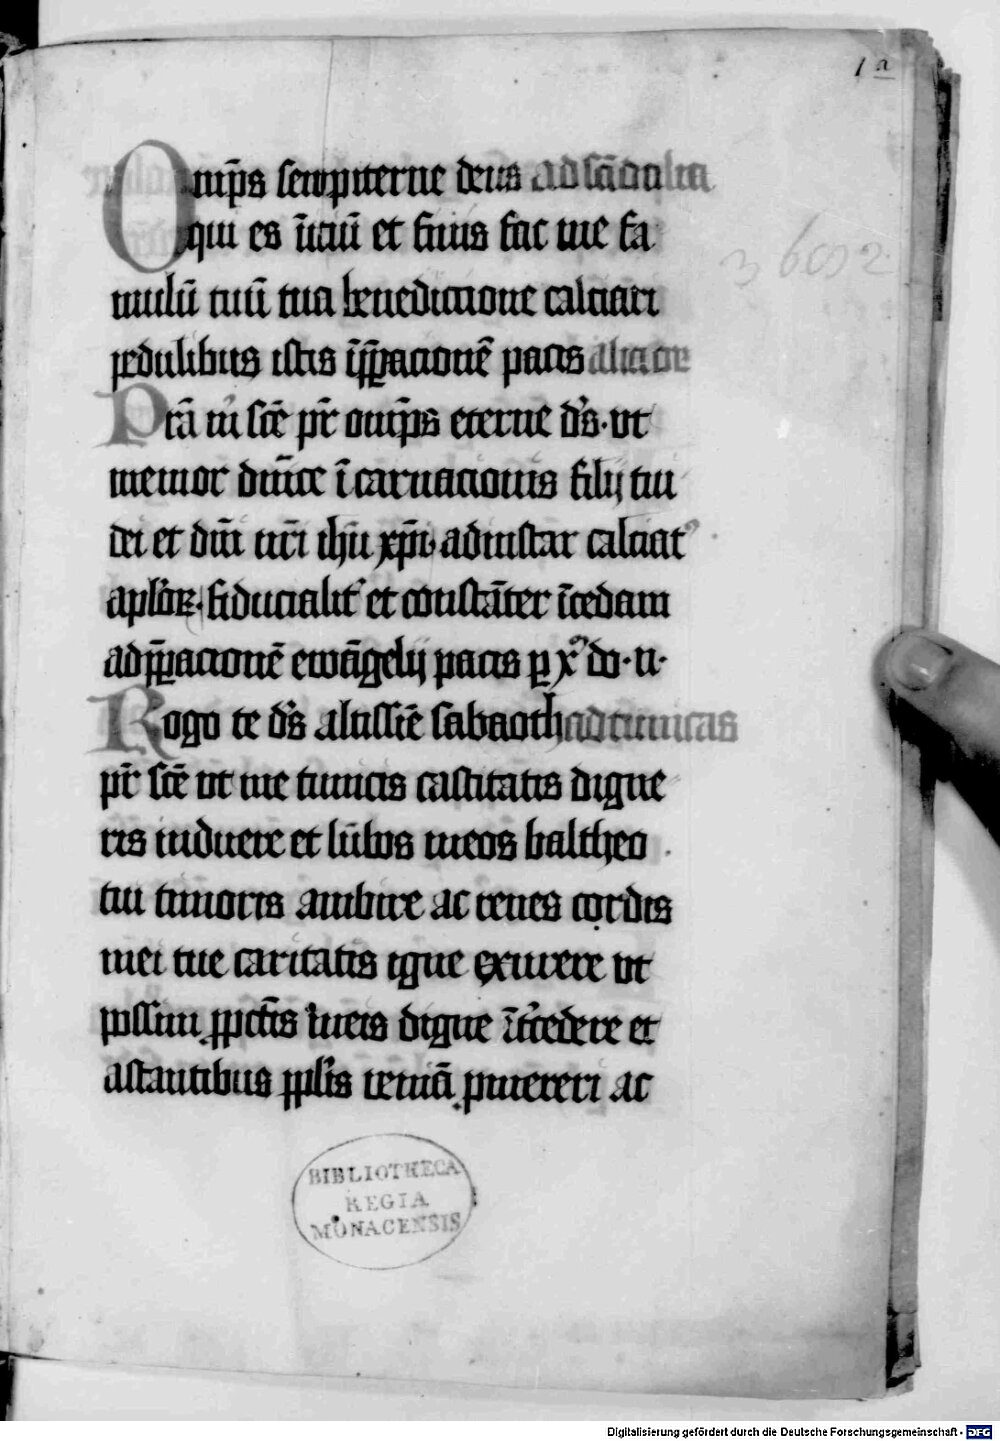 1 a
Omp̄s sempiterne deus ad sādalia
qui es ītiū et finis fac me fa
mulū tuū tua benediccione calciari
pedulibus istis ī p̄paracionē pacis alia or̄
Prā m̄ scē pr̄ omp̄s eterne ds̄. vt
memor dnīce īcarnacionis filij tui
dei et dnī nrī ihū xp̄i. ad instar calciat᷒
aplōꝝ. fiducialit᷒ et constāter īcedam
ad p̄paracionē ewāgelij pacis ꝑ x᷒ do. n.
Rogo te ds̄ altissīe sabaoth ad tunicas
pr̄ scē vt me tunicis castitatis digne
ris induere et lūbos meos baltheo
tui timoris ambire ac renes cordis
mei tue caritatis igne exurere vt
possim ꝓ pctīs meis digne ītcedere et
astantibus pplīs veniā promereri ac
BIBLIOTHECA
REGIA
MONACENSIS
Digitalisierung gefördert durch die Deutsche Forschungsgemeinschaft - DFG